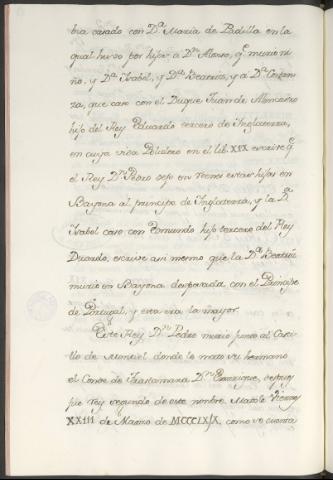 bia casado con D.ª Maria de Padilla en la
qual huvo por hijos a D.ⁿ Alonso, q.ᵉ murio ni
ño, y D.ª Isabel, y D.ª Beatris, y a D.ª Costan
za, que caso con el Duque Juan de Alencastro
hijo del Rey Eduardo tercero de Inglaterra,
en cuya vida Polidoro en el lib. XIX escrive q.ᵉ
el Rey D.ⁿ Pedro dejo en rrenes estas hijas en
Bayona al principe de Inglaterra, y la D.ª
Isabel caso con Edmundo hijo tercero del Rey
Duardo, escrive asi mesmo que la D.ª Beatris
murio en Bayona desposada con el Principe
de Portugal, y esta era la mayor.
Este Rey D.ⁿ Pedro murio junto al Casti
llo de Montiel donde lo mato su hermano
el Conde de Trastamara D.ⁿ Enrrique, despues
fue rey segundo de este nombre. Matole Viernes
XXIII de Marzo de MCCCLXIX, como se cuenta